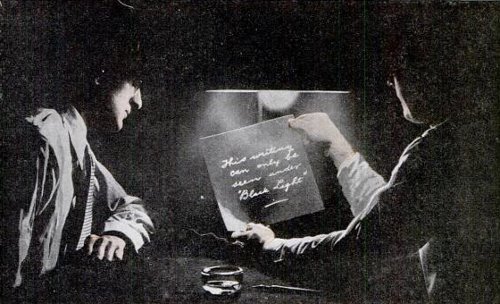 This writing
can only be
seen under
"Black Light"